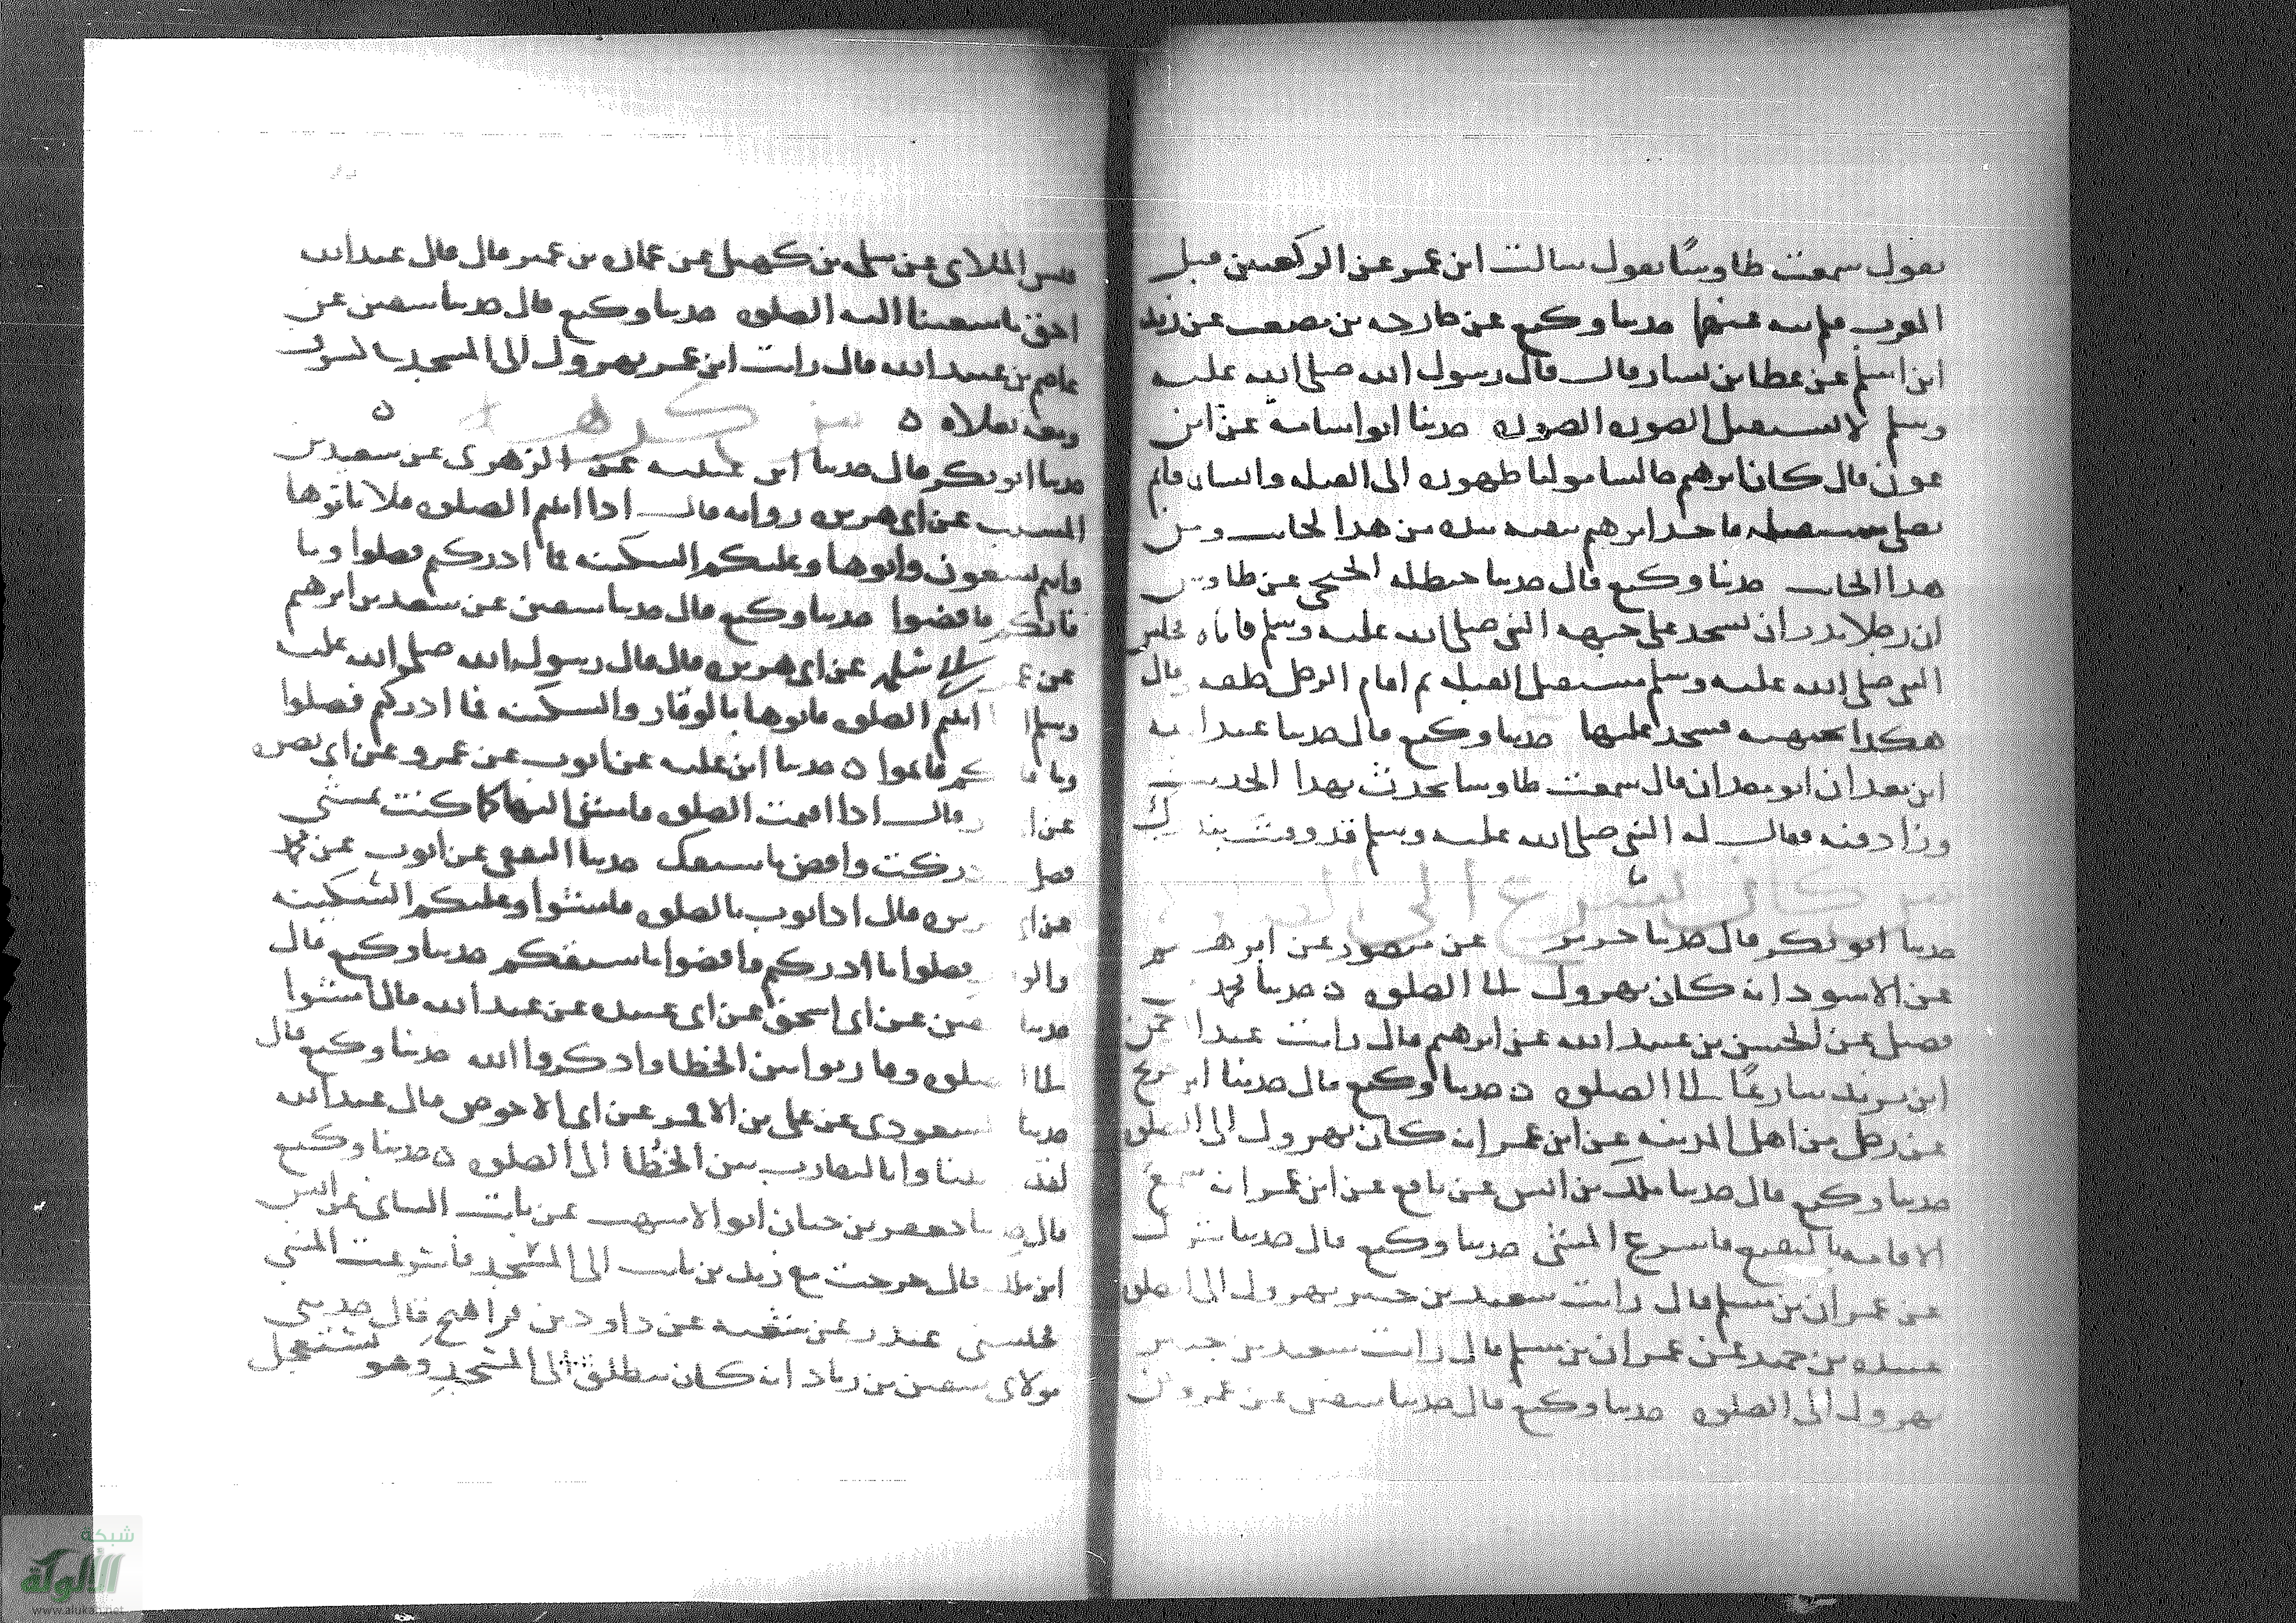 يقول سمعت طاوسًا يقول سالت ابن عمر عن الركعتين قبل
المغرب فلم ينه عنهما حدثنا وكيع عن خارجه بن مصعب عن زيد
ابن اسلم عن عطا بن يسار قال قال رسول الله صلى الله عليه
وسلم لا تستقبل الصوره الصوره حدثنا ابو اسامة عن ابن
عون قال كان ابرهيم جالسا موليا ظهره الى القبله وانسان قائم
يصلي مستقبله ابرهيم بيده من هذا الجانب ومن
هذا الجانب حدثنا وكيع قال حدثنا حنظله الجمحي عن طاوس
ان رجلا نذر ان يسجد على جبهه النبي صلى الله عليه وسلم فاتاه فجلس
النبي صلى الله عليه وسلم مستقبل القبله ثم اقام الرجل خلفه قال
هكذا بجبهته فسجد عليها حدثنا وكيع قال حدثنا
ابو معدان قال سمعت طاوسا يحدث بهذا الحديث
وزاد فيه فقال له النبي صلى الله عليه وسلم قد وفيت بنذرك
من كان يسرع الى الصلوه
حدثنا ابو بكر قال حدثنا جرير عن منصور عن ابرهيم
عن الاسود انه كان يهرول الى الصلوه ه حدثنا محمد بن
فضيل عن الحسن بن عبيد الله عن ابرهيم قال رايت عبد الرحمن
ابن يزيد سارعًا الى الصلوه ه حدثنا وكيع قال حدثنا ابن جريج
عن رجل من اهل المدينه عن ابن عمر انه كان يهرول الى الصلوه
حدثنا وكيع قال حدثنا ملك بن انس عن نافع عن ابن عمر انه سمع
الاقامه بالبقيع فاسرع المشي حدثنا وكيع قال حدثنا شريك
عن عمران بن مسلم قال رايت سعيد بن جبير يهرول الى الصلوه
عبيده بن حميد عن عمران بن مسلم قال رايت سعيد بن جبير
يهرول الى الصلوه حدثنا وكيع قال حدثنا سفين عن عمرو بن
قيس الملائي عن سلمه بن كهيل عن عماره بن عمير قال قال عبد الله
احق ما سعينا اليه الصلوه حدثنا وكيع قال حدثنا سفين عن
عاصم بن عبيد الله قال رايت ابن عمر يهرول الى المسجد
ومعه نعلاه ه من كرهه ه
حدثنا ابو بكر قال حدثنا ابن عيينه عن الزهري عن سعيد بن
المسيب عن ابي هريره روايه قال اذا اتيتم الصلوه فلا تاتوها
وانتم تسعون واتوها وعليكم السكينه فما ادركتم فصلوا وما
فاتكم فاقضوا حدثنا وكيع قال حدثنا سفين عن سعد بن ابرهيم
عن ابي سلمه عن ابي هريره قال قال رسول الله صلى الله عليه
وسلم اذا اتيتم الصلوه فاتوها بالوقار والسكينه فما ادركتم فصلوا
وما فاتكم فاتموا ه حدثنا ابن عليه عن ايوب عن عمرو عن ابي نضره
عن قال اذا اقيمت الصلوه فامش اليها كما كنت تمشي
فصل ادركت واقض ما سبقك حدثنا الثقفي عن ايوب عن محمد
عن ابي هريره قال اذا ثوب بالصلوه فامشوا وعليكم السكينه
والوقار فصلوا ما ادركتم واقضوا ما سبقكم حدثنا وكيع قال
حدثنا سفين عن ابي اسحق عن ابي عبيده عن عبد الله قال امشوا
الى الصلوه وقاربوا بين الخطا واذكروا الله حدثنا وكيع قال
حدثنا المسعودي عن علي بن الاقمر عن ابي الاحوص قال عبد الله
لقد رايتنا وانا لنقارب بين الخُطا الى الصلوه ه حدثنا وكيع
قال حدثنا جعفر بن حيان ابو الاشهب عن ثابت البناني عن انس
ابن ملك قال خرجت مع زيد بن ثابت الى المسجد فاسرعت المشي
فحبسني غندر عن شعبه عن داود بن فراهيج قال حدثني
مولاي سفين بن زياد انه كان ينطلق الى المسجد وهو يستعجل
شبكة الألوكة
www.alukah.net